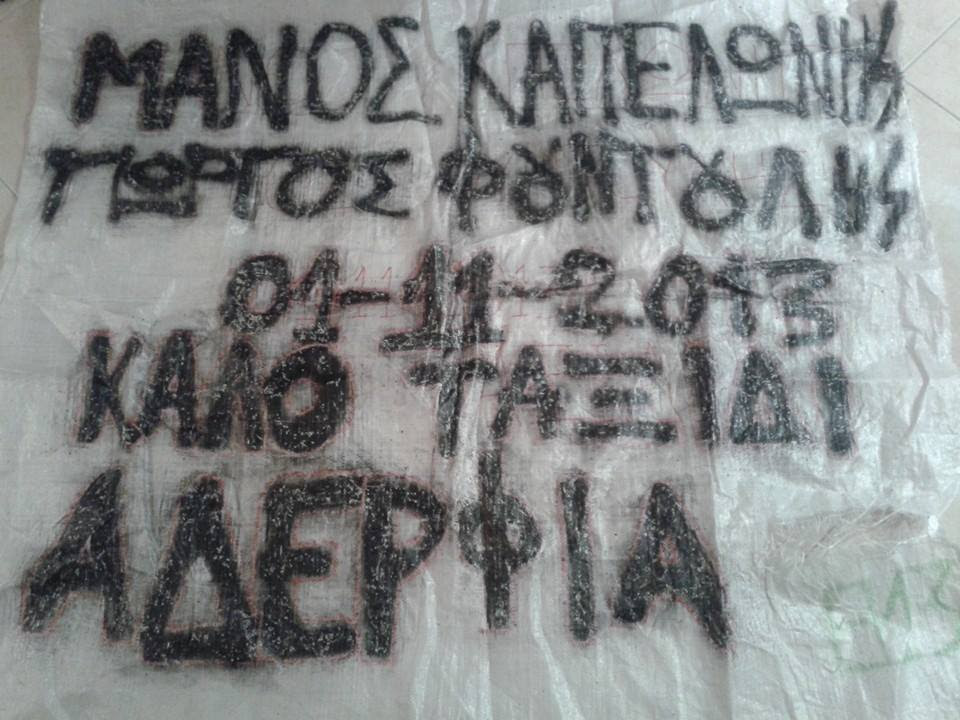 ΜΑΝΟΣ ΚΑΠΕΛΩΝΗΣ
ΓΙΩΡΓΟΣ ΦΟΥΝΤΟΥΛΗΣ
01-11-2013
ΚΑΛΟ ΤΑΞΙΔΙ
ΑΔΕΡΦΙΑ